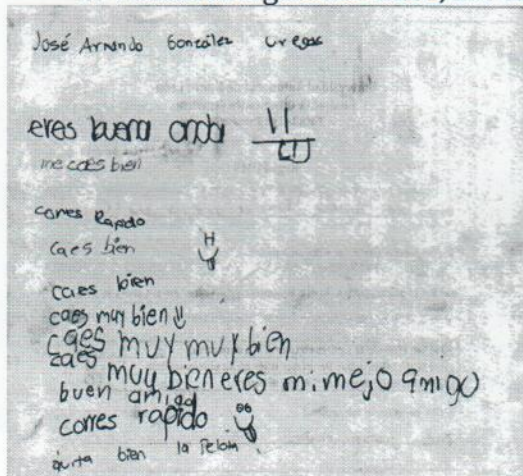 José Armando González Vregas
eres buena onda
me caes bien
corres Rapido
Caes bien
caes bien
caes muy bien
caes muy muy bien
caes muy bien eres mi mejo amigo
buen amigo
corres rapido
quita bien la Pelota